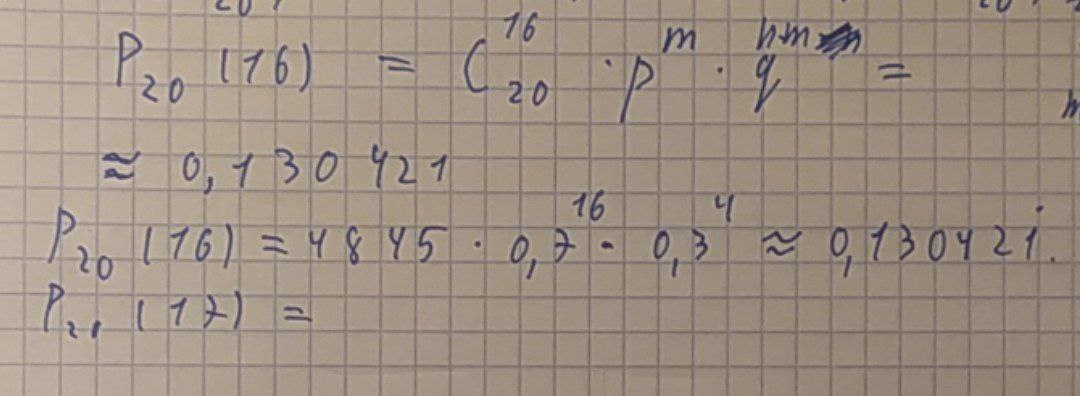 P₂₀ (16) = C₂₀¹⁶ · pᵐ · qⁿᵐ =
≈ 0,130421
P₂₀ (16) = 4845 · 0,7¹⁶ · 0,3⁴ ≈ 0,130421.
P₂₁ (17) =